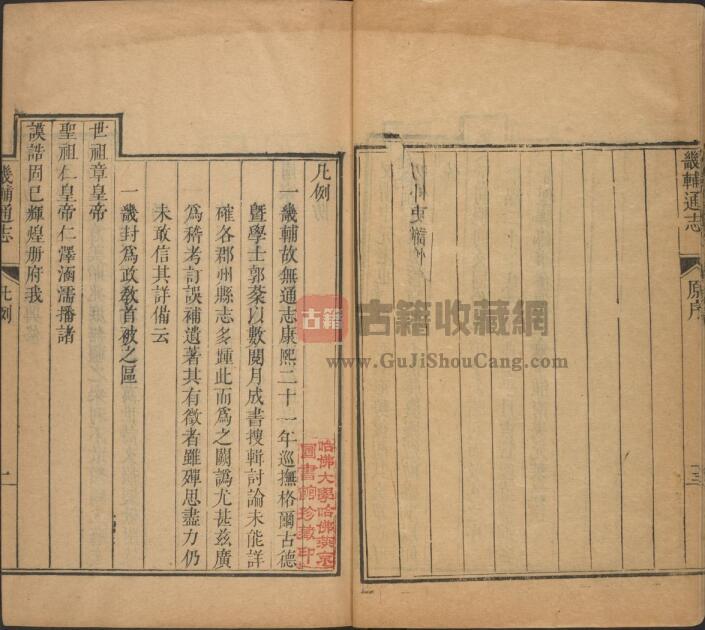 畿輔通志
原序
凡例
一畿輔故無通志康熙二十一年巡撫格爾古德
暨學士郭棻以數閱月成書搜輯討論未能詳
確各郡州縣志多踵此而爲之闕譌尤甚茲廣
爲稽考訂誤補遺著其有徵者雖殫思盡力仍
未敢信其詳備云
一畿封爲政敎首被之區
世祖章皇帝
聖祖仁皇帝仁澤涵濡播諸
謨誥固已輝煌册府我
畿輔通志
凡例
一
哈佛大學哈佛燕京
圖書館珍藏印
古籍
古籍收藏網
www.GuJiShouCang.com